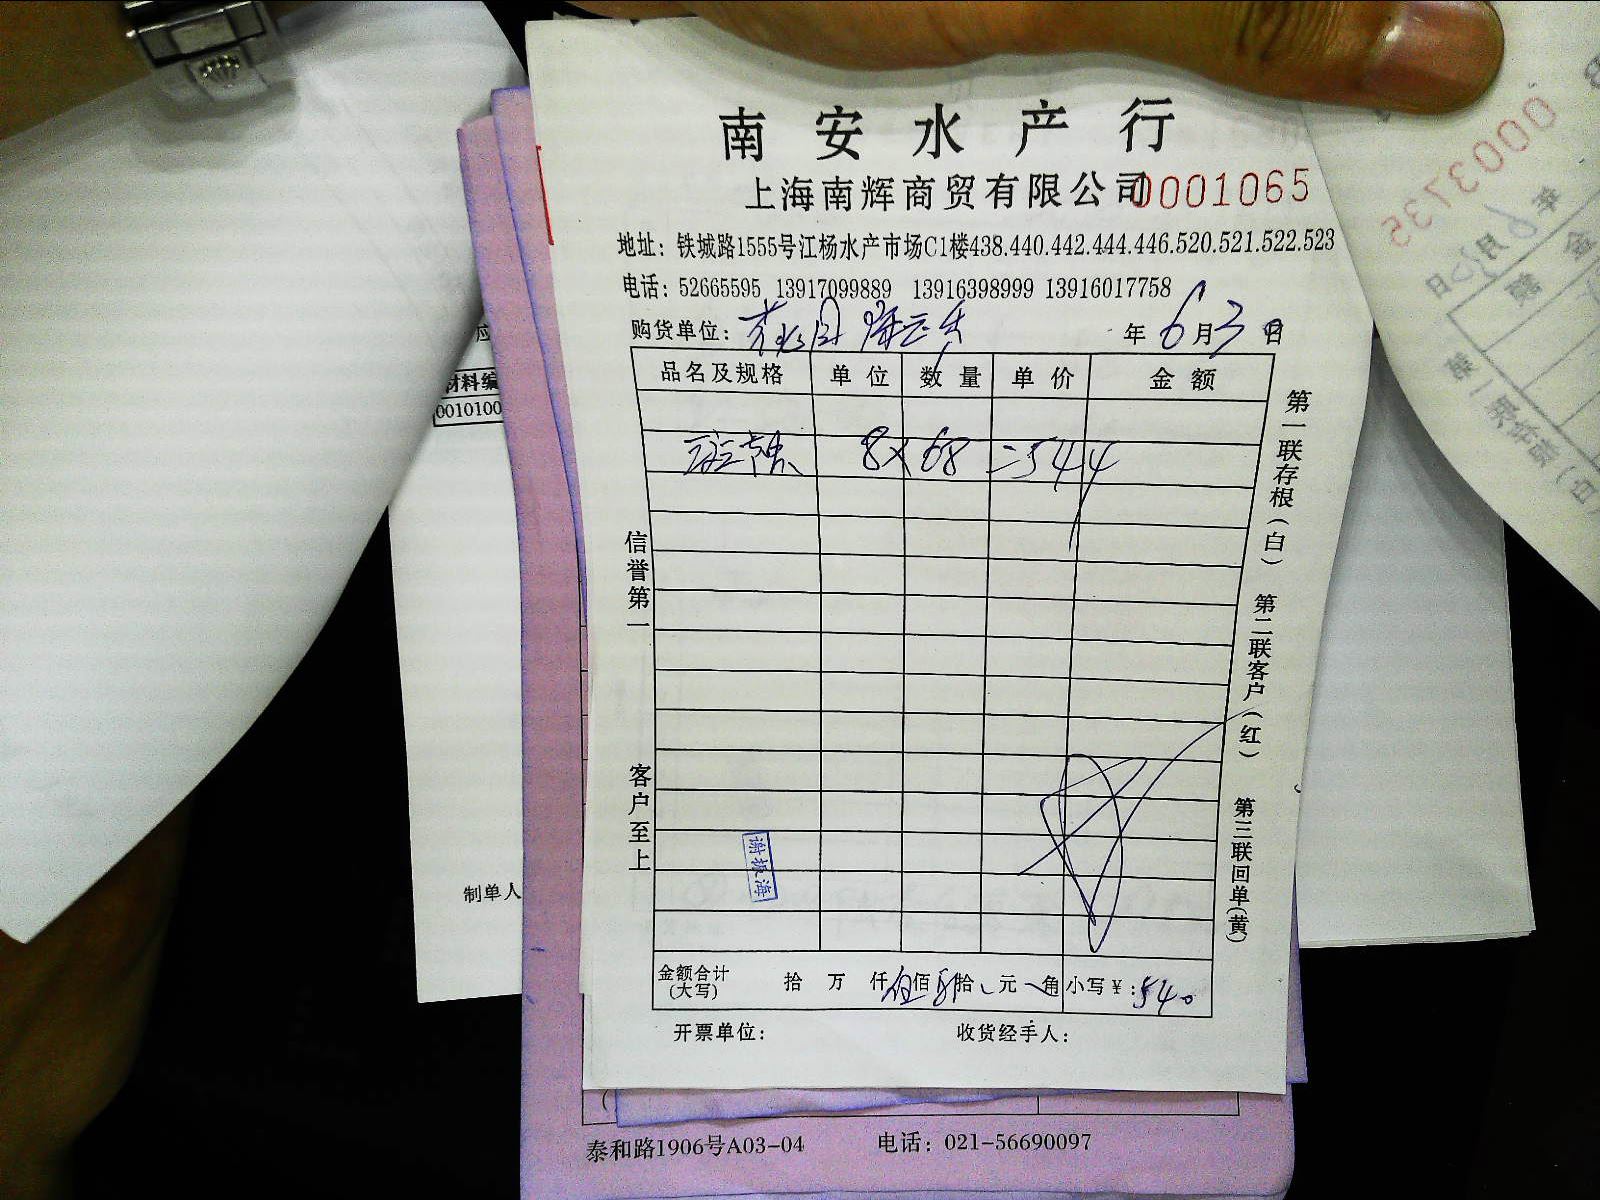 南安水产行
上海南辉商贸有限公司 0001065
地址：铁城路1555号江杨水产市场C1楼438.440.442.444.446.520.521.522.523
电话：52665595 13917099889 13916398999 13916017758
购货单位： 年 6月3日
品名及规格 单位 数量 单价 金额
8×68=544
信誉第一
客户至上
第一联存根（白） 第二联客户（红） 第三联回单（黄）
谢振海
金额合计（大写） 拾 万 仟 伍佰 肆拾 元 角 小写￥：540
开票单位： 收货经手人：
泰和路1906号A03-04 电话：021-56690097
材料编
0010100
制单人
0003735